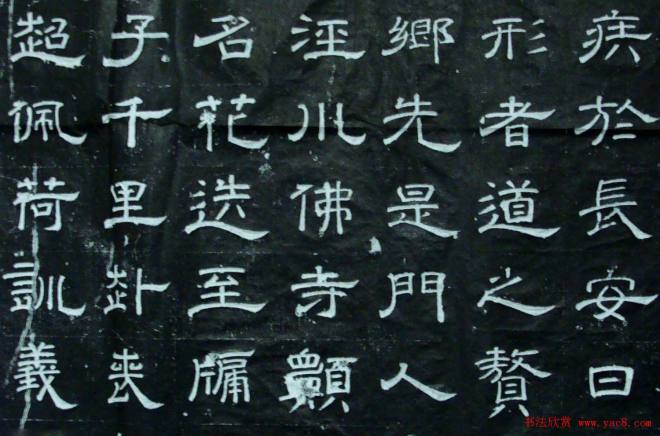 疾於長安曰
形者道之贅
鄉先是門人
涇川佛寺顫
名花迭至牖
子千里赴喪
超佩荷訓義
书法欣赏 www.yac8.com